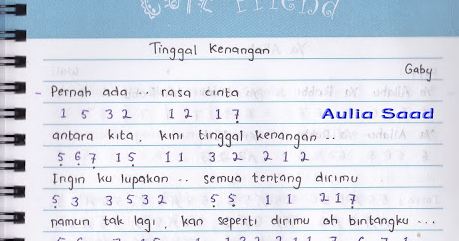 Tinggal Kenangan
Gaby
- Pernah ada .. rasa cinta
1 5 3 2 1 2 1 7̣
Aulia Saad
antara kita, kini tinggal kenangan ..
5̣ 6̣ 7̣ 1 5̣ 1 1 3 2 2 1 2
Ingin ku lupakan .. semua tentang dirimu
5̣ 3 3 5 3 2 5̣ 5̣ 1 1 2 1 7̣
namun tak lagi, kan seperti dirimu oh bintangku ...